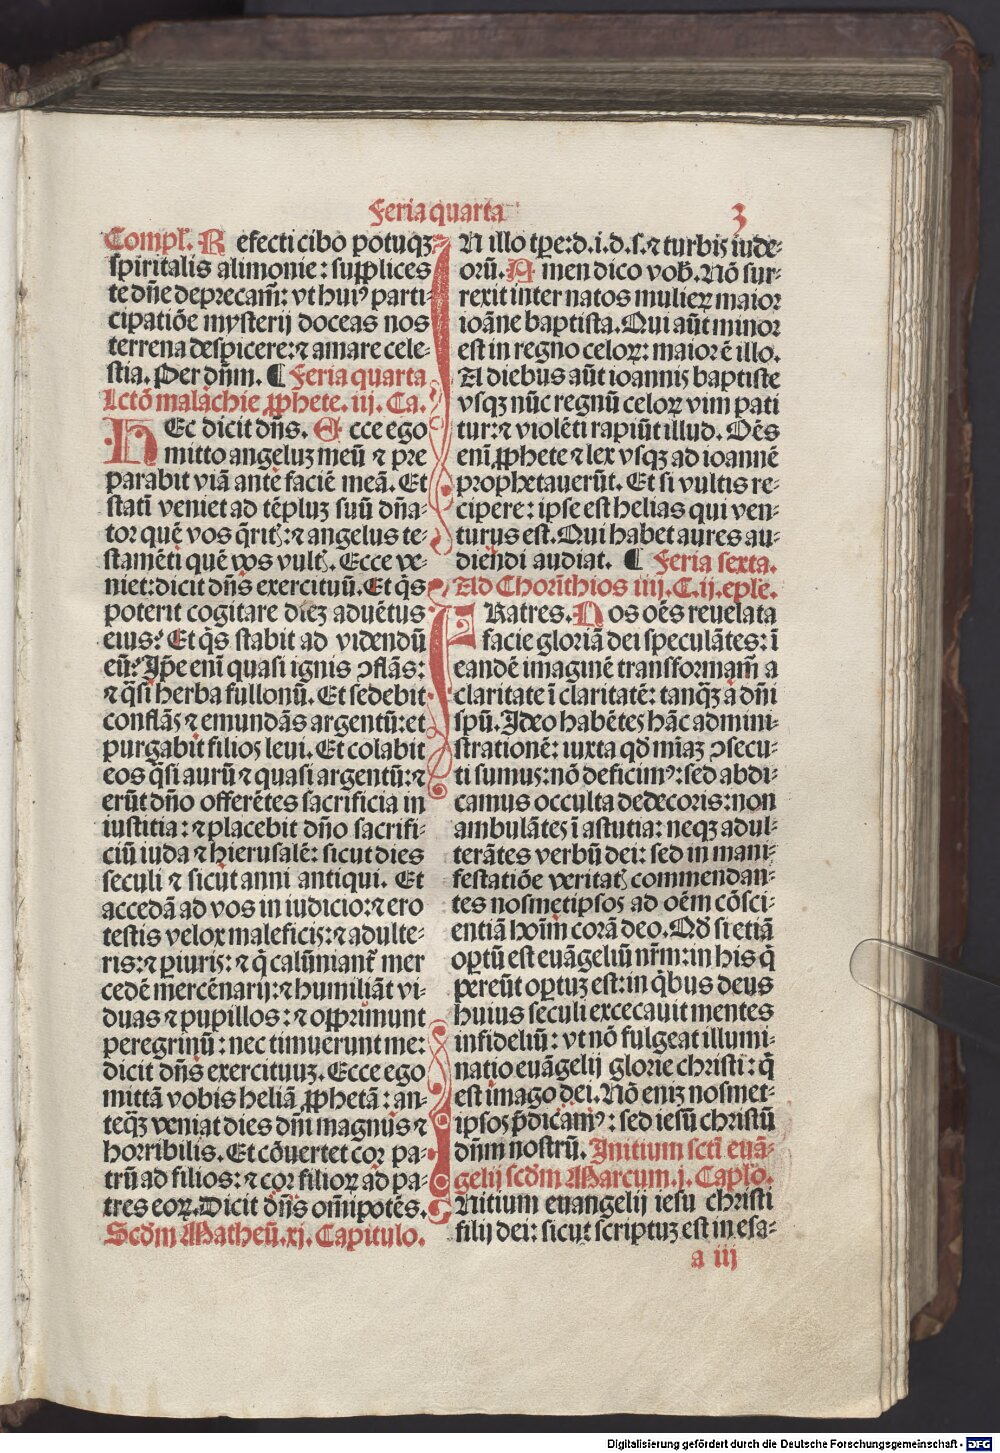 Feria quarta
3
Compl'. R efecti cibo potuqz
spiritalis alimonie: supplices
te dn̄e deprecam̄: vt huiꝰ parti-
cipatiōe mysterij doceas nos
terrena despicere: ⁊ amare cele-
stia. Per dn̄m. ¶ Feria quarta
Lctō malachie ꝓphete. iij. Ca.
HEc dicit dn̄s. E cce ego
mitto angeluz meū ⁊ pre
parabit viā ante faciē meā. Et
statī veniet ad tēpluz suū dn̄a-
tor quē vos q̄ritꝭ: ⁊ angelus te-
stamēti quē vos vultꝭ. Ecce ve-
niet: dicit dn̄s exercituū. Et q̄s
poterit cogitare diez aduētus
eius? Et q̄s stabit ad videndū
eū? Ip̄e enī quasi ignis ꝯflās:
⁊ q̄si herba fullonū. Et sedebit
conflās ⁊ emundās argentū: et
purgabit filios leui. Et colabit
eos q̄si aurū ⁊ quasi argentū: ⁊
erūt dn̄o offerētes sacrificia in
iustitia: ⁊ placebit dn̄o sacrifi-
ciū iuda ⁊ hierusalē: sicut dies
seculi ⁊ sicut anni antiqui. Et
accedā ad vos in iudicio: ⁊ ero
testis velox maleficis: ⁊ adulte-
ris: ⁊ ꝑiuris: ⁊ q̄ calūniant᷑ mer
cedē mercēnarij: ⁊ humiliāt vi-
duas ⁊ pupillos: ⁊ opprimunt
peregrinū: nec timuerunt me:
dicit dn̄s exercituuz. Ecce ego
mittā vobis heliā ꝓphetā: an-
teqz̄ veniat dies dn̄i magnus ⁊
horribilis. Et cōuertet cor pa-
trū ad filios: ⁊ cor filioꝝ ad pa-
tres eoꝝ. Dicit dn̄s om̄ipotēs.
Scdm Matheū. xj. Capitulo.
IN illo tp̄e: d. i. d. s. ⁊ turbis iude-
orū. A men dico vob̄. Nō sur-
rexit inter natos mulieꝝ maior
ioāne baptista. Qui aūt minor
est in regno celoꝝ: maior ē illo.
A diebus aūt ioannis baptiste
vsqz nūc regnū celoꝝ vim pati
tur: ⁊ violēti rapiūt illud. Oēs
enī ꝓphete ⁊ lex vsqz ad ioannē
prophetauerūt. Et si vultis re-
cipere: ipse est helias qui ven-
turus est. Qui habet aures au-
diendi audiat. ¶ Feria sexta.
Ad Chorīthios iiij. C. ij. ep̄le.
FRatres. N os oēs reuelata
facie gloriā dei speculātes: ī
eandē imaginē transformam̄ a
claritate ī claritatē: tanqz̄ a dn̄i
spū. Ideo habētes hāc admini-
strationē: iuxta qd̄ mīaz ꝯsecu-
ti sumus: nō deficimꝰ: sed abdi-
camus occulta dedecoris: non
ambulātes ī astutia: neqz adul-
terātes verbū dei: sed in mani-
festatiōe veritatꝭ commendan-
tes nosmetipsos ad oēm cōsci-
entiā hoīm corā deo. Qd̄ si etiā
oꝑtū est euāgeliū nr̄m: in his q̄
pereūt oꝑtuz est: in q̄bus deus
huius seculi excecauit mentes
infideliū: vt nō fulgeat illumi-
natio euāgelij glorie christi: q̄
est imago dei. Nō eniz nosmet-
ipsos p̄dicamꝰ: sed iesū christū
dn̄m nostrū. Initium scti euā-
gelij scdm Marcum. j. Caplō.
INitium euangelij iesu christi
filij dei: sicut scriptuz est in esa-
a iij
Digitalisierung gefördert durch die Deutsche Forschungsgemeinschaft - DFG